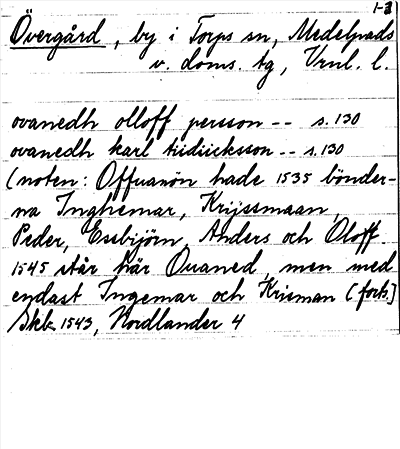 1-3
Övergård, by i Torps sn, Medelpads
v. doms. tg, Vrnl. l.
ovanedh olloff persson -- s. 130
ovanedh karl tidiicksson -- s. 130
(noten: Offuanön hade 1535 bönder-
na Inghemar, Krijssmaan,
Peder, Essbijörn, Anders och Oloff.
1545 står här Ouaned, men med
endast Ingemar och Krisman (forts.)
Skb 1543, Nordlander 4